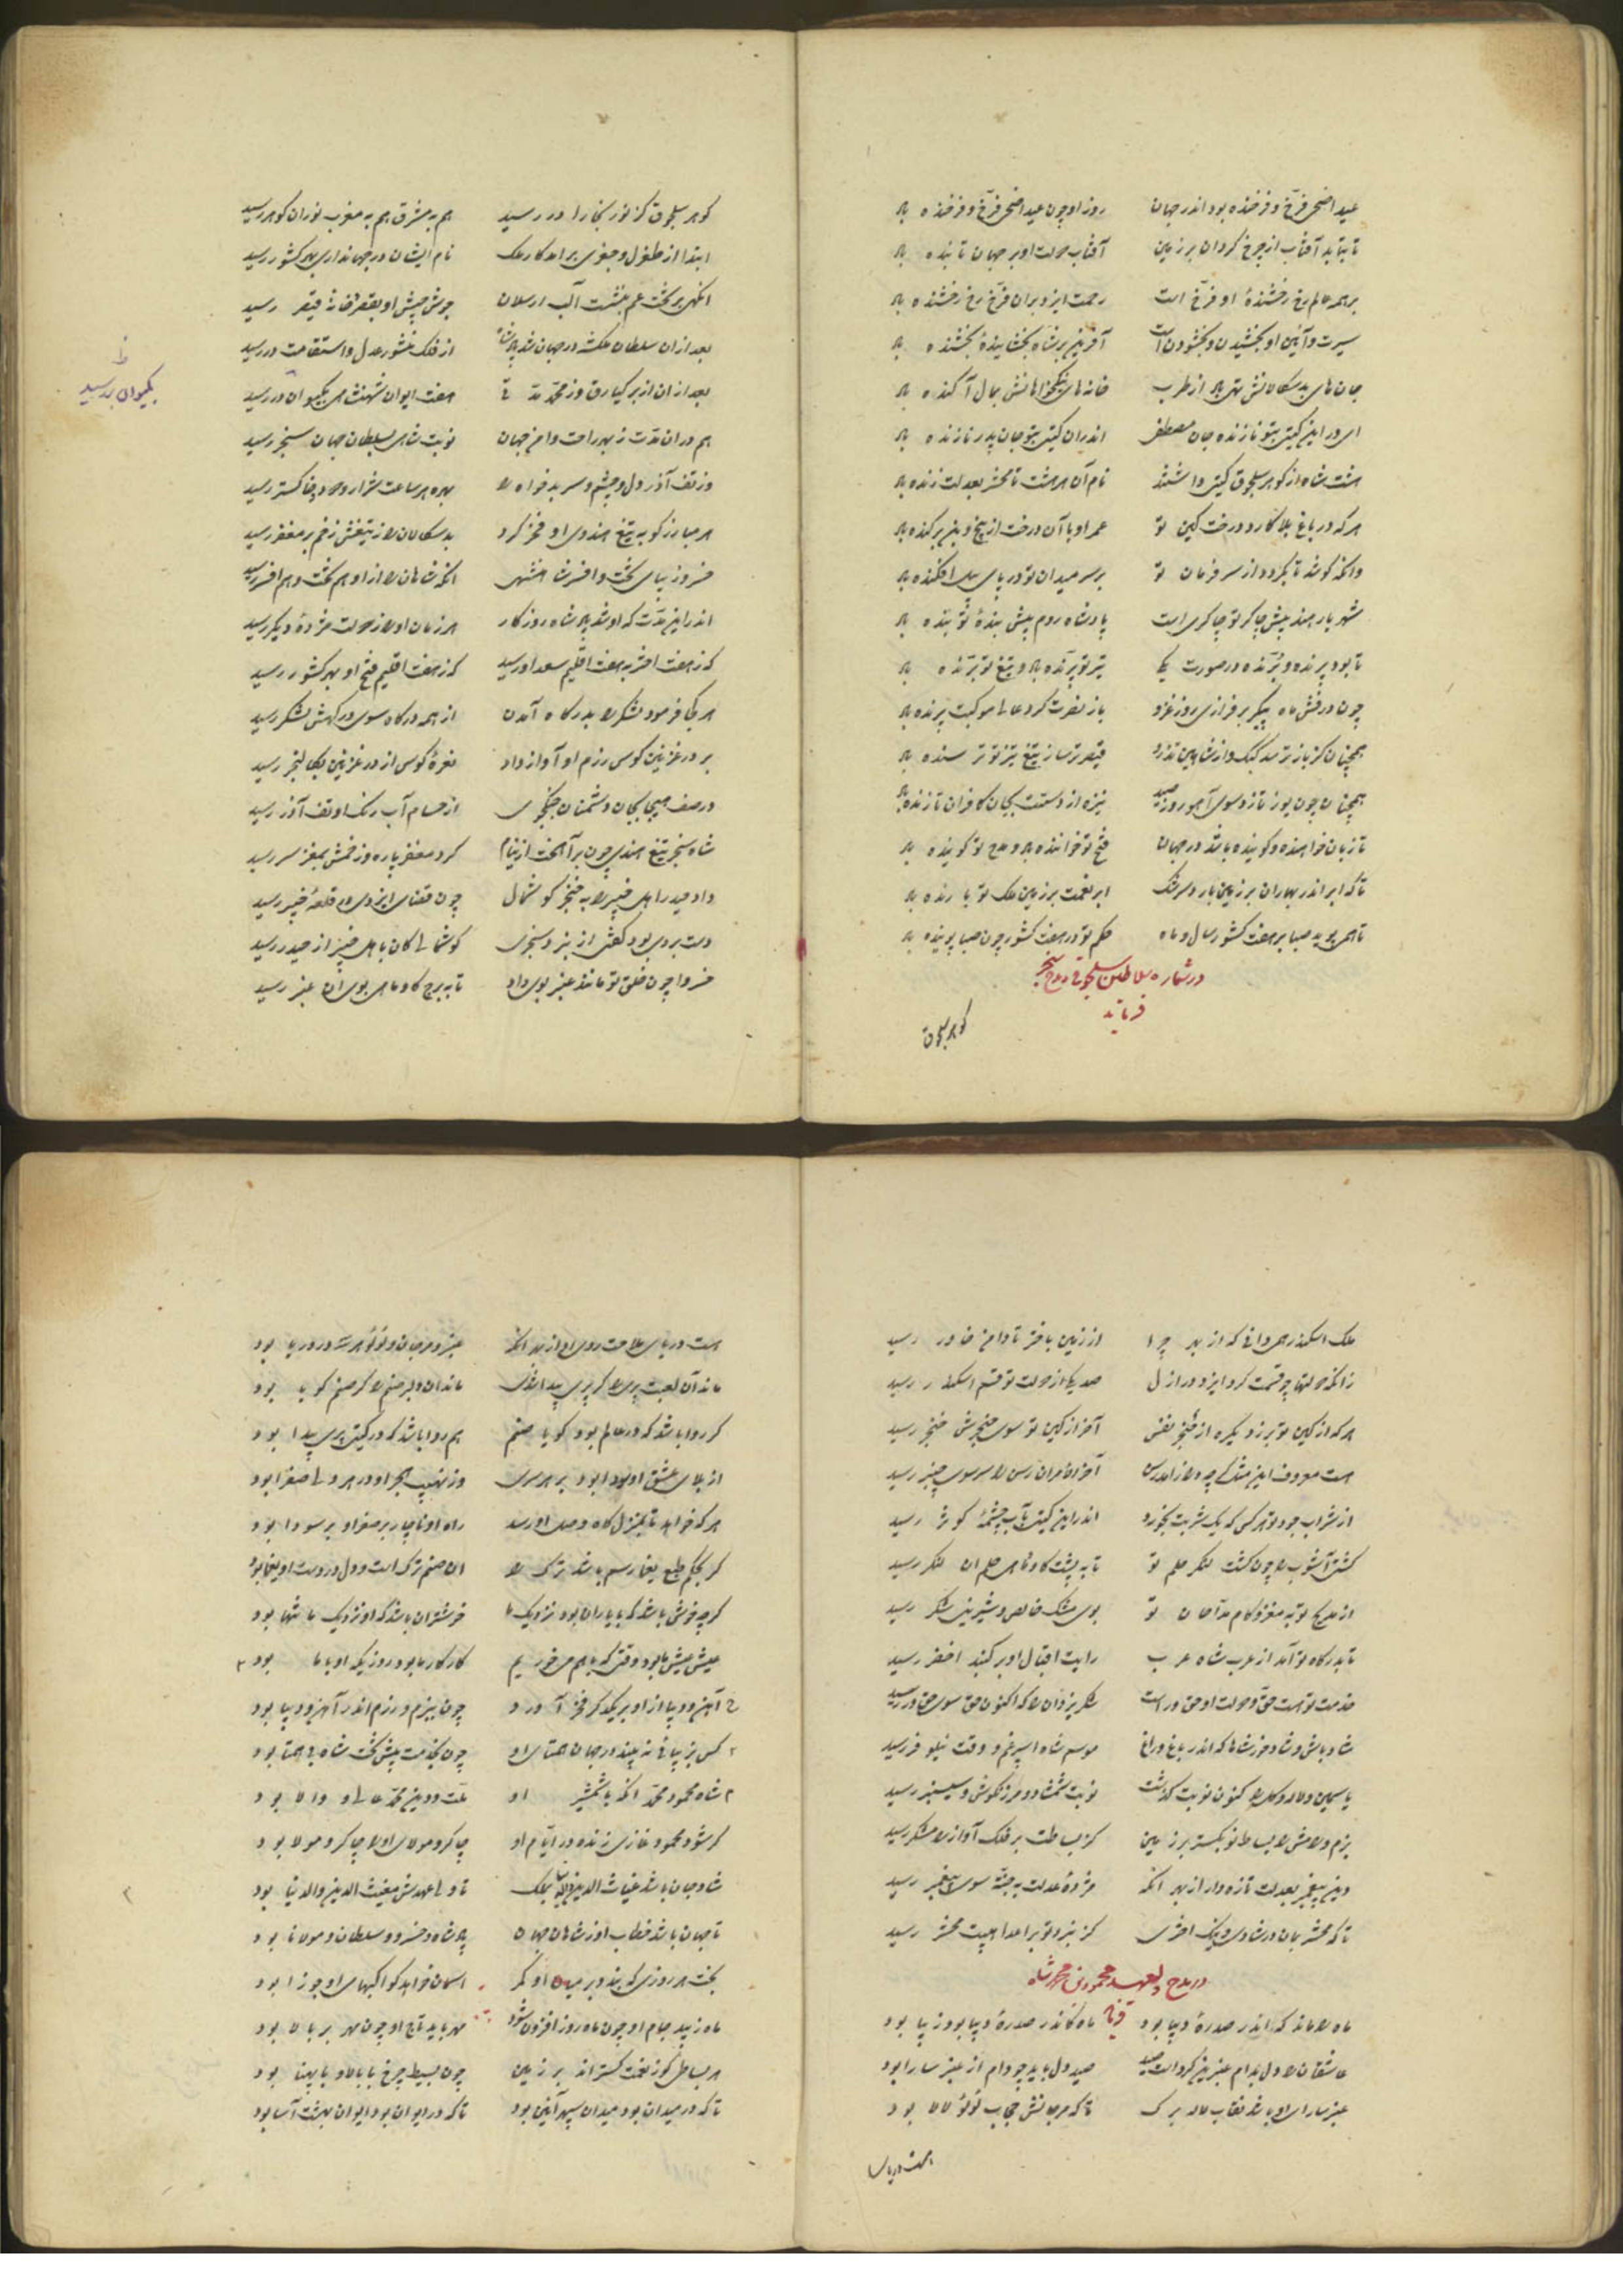 عید اضحی فرّخ و فرخنده بود اندر جهان روز او چون عید اضحی فرّخ و فرخنده باد
تا بتابد آفتاب از چرخ گردان بر زمین آفتاب دولت او بر جهان تابنده باد
بر همه عالم رخ رخشندهٔ او فرّخ است رحمت ایزد بران فرّخ رخ رخشنده باد
سیرت و آیین او بخشیدن و بخشودن است آفرین بر شاه بخشایندهٔ بخشنده باد
جان‌های بدسکالانش تهی باد از طرب خانه‌های نیکخواهانش بمال آکنده باد
ای در این گیتی بتو نازنده جان مصطفی اندران گیتی بتو جان پدر نازنده باد
هشت شاه از گوهر سلجوق گیتی داشتند نام آن هر هشت تا محشر بعدلت زنده باد
هر که در باغ بلا کارد درخت کین تو عمر او با آن درخت از بیخ و بن برکنده باد
وانکه کوشد تا بگردد از سر فرمان تو بر سر میدان تو در پای پیل افکنده باد
شهریار هند پیش چاکر تو چاکری است پادشاه روم پیش بندهٔ تو بنده باد
تا بود پرنده و برّنده در صورت یکی تیر تو پرّنده باد و تیغ تو برّنده باد
چون درفش ماه پیکر برفرازی روز غزو باز نصرت گرد عالی موکبت پرنده باد
همچنان کز باز ترسد کبک و از شاهین تذرو قیصر ترسا ز تیغ تیز تو ترسنده باد
همچنان چون یوز تازد سوی آهو روز صید نیزه از دستت بجان کافران تازنده باد
تا زبان خواهنده و گوینده باشد در جهان فتح تو خواننده باد و مدح تو گوینده باد
تا که ابر اندر بهاران بر زمین بارد سرشک ابر نعمت بر زمین ملک تو بارنده باد
تا همی پوید صبا بر هفت کشور سال و ماه حکم تو در هفت کشور چون صبا پوینده باد
در شماره سلاطین سلجوقی و مدح سنجر
فرماید
گوهر سلجوق
گوهر سلجوق کز نور بخارا در رسید هم به مشرق هم به مغرب نور ان گوهر رسید
ابتدا از طغرل و چغری برامد کار ملک نام ایشان در جهانداری بهر کشور رسید
انگهی بر تخت عم بنشست آلب ارسلان جوش جیش او بقصر و خانهٔ قیصر رسید
بعد ازان سلطان ملکشه در جهان شد پادشاه از فلک منشور عدل و استقامت در رسید
بعد ازان از برکیارق وز محمّد مدتی هفت ایوان شهنشاهی بکیوان در رسید
ظ
بکیوان بر رسید
هم دران مدّت ز بهر راحت و امن جهان نوبت شاهی بسلطان جهان سنجر رسید
وز تف آذر دل و چشم و سر بدخواه را بهره هر ساعت شرار و دود و خاکستر رسید
هر مبارز کو به تیغ هندوی او فخر کرد بدسکالان را ز تیغش زخم بر مغفر رسید
خسرو زیبای تخت و افسرست انشهی انکه شاهان را از او هم تخت و هم افسر رسید
اندر این مدّت که او شد پادشاه روزگار هر زمان او را ز دولت مژدهٔ دیگر رسید
که ز هفت اختر به هفت اقلیم سعد او رسید که ز هفت اقلیم فتح او بهر کشور رسید
هر کجا فرمود لشکر را بدرگاه آمدن از همه درگاه سوی درگهش لشکر رسید
بر در غزنین کوس رزم او آواز داد نعرهٔ کوس از در غزنین بکالنجر رسید
در صف هیجا بجان دشمنان جنگجوی از حسام آب رنگ او تف آذر رسید
شاه سنجر تیغ هندی چون برآهخت از نیام کرد مغفر پاره وز خمش بمغز سر رسید
داد حیدر اهل خیبر را به خنجر گوشمال چون قضای ایزدی در قلعهٔ خیبر رسید
دست بردی بود گفتی از نبرد سنجری گوشمالی کان باهل خیبر از حیدر رسید
خسروا چون خلق تو مانند عنبر بوی داد تا به برج گاو ماهی بوی ان عنبر رسید
ملک اسکندر همی دانی که از بهر چرا از زمین باختر تا دامن خاور رسید
زانکه دولتها چو قسمت کرد ایزد در ازل صد یک از دولت تو قسم اسکندر رسید
هر که از کین تو برزد یکره از خنجر نفس آخر از کین تو سوی حنجرش خنجر رسید
هست معروف این مثل گرچه دراز اندر رسن آخرالامر ان رسن را سر سوی چنبر رسید
از شراب جود تو هر کس که یک شربت بخورد اندر این گیتی بآب چشمهٔ کوثر رسید
کشتی آشوب را چون کشت لنگر حلم تو تا به پشت گاو ماهی حلم ان لنگر رسید
از مدیح تو به مغز و کام مدّاحان تو بوی مشک خالص و شیرینی شکر رسید
تا بدرگاه تو آمد از عرب شاه عرب رایت اقبال او بر گنبد اخضر رسید
خدمت تو هست حقّ و دولت او حق ور است شکر یزدان را که اکنون حق سوی حق ور رسید
شاد باش و شاد خور شاها که اندر باغ و راغ موسم شاه اسپرغم و وقت نیلوفر رسید
یاسمین و لاله و گل را کنون نوبت گذشت نوبت شمشاد و مرزنگوش و سیسنبر رسید
بزم و رامش را بساط نو بگستر بر زمین کز بساطت بر فلک آواز رامشگر رسید
دین پیغمبر بعدلت تازه دار از بهر انکه مژدهٔ عدلت به جنّت سوی پیغمبر رسید
تا که محشر بمان در شادی و نیک اختری کز نبرد تو بر اعدا هیبت محشر رسید
در مدح ولیعهد محمود بن محمد شاه
فرماید
ماه را ماند که اندر صدرهٔ دیبا بود ماه کاندر صدرهٔ دیبا بود زیبا بود
عاشقان را دل بدام عنبرین کردست صید صید دل باید چو دام از عنبر سارا بود
عنبر سارای او باشد نقاب لاله برگ تا که مرجانش حجاب لؤلؤ لالا بود
هست دریای
هست دریای ملاحت روی او از بهر انکه عنبر و مرجان و لؤلؤ هر سه در دریا بود
ماند آن لعبت پری را گر پری پیدا شدی ماند ان دلبر صنم را گر صنم گویا بود
گر روا باشد که در عالم بود گویا صنم هم روا باشد که در گیتی پری پیدا بود
از بلای عشق او سودا بود بر هر سری وز نهیب هجر او در هر دلی صفرا بود
هر که خواهد تا بمنزلگاه وصل او رسد راه او ناچار بر صفرا و بر سودا بود
گر بحکم طبع یغما رسم باشد ترک را ان صنم ترک است و دل در دست او یغما بود
گرچه خوش باشد که با یاران بود نزدیک ما خوشتر ان باشد که او نزدیک ما تنها بود
عیش عیش ما بود وقتی که با هم می خوریم کار کار ما بود روزی که او با ما بود ۳
آهن و دیبا از او بر یکدگر فخر آورد چون ببزم و رزم اندر آهن و دیبا بود
۲ کس بزیبائی نه بیند در جهان همتای او چون بخدمت پیش تخت شاه بی همتا بود
۳ شاه محمود محمّد انکه با شمشیر او ملت و دین محمّد عالی و والا بود
گر شود محمود غازی زنده در ایّام او چاکر و مولای او را چاکر و مولا بود
شاد جان باشد غیاث الدین بملک تا ولی عهدش مغیث الدین والدنیا بود
تا جهان باشد خطاب او ز شاهان جهان پادشاه و خسرو و سلطان و مولانا بود
بخت هر روزی که بندد بر میان او کمر اسمان خواهد که واکبهای او جوزا بود
ماه زیبد جام او چون ماه روز افزون شود مهر باید تاج او چون مهر بر بالا بود
هر بساطی کو ز نعمت گستراند بر زمین چون بسیط چرخ با بالا و با پهنا بود
تا که در میدان بود میدان سپهر آئین بود تا که در ایوان بود ایوان بهشت آسا بود